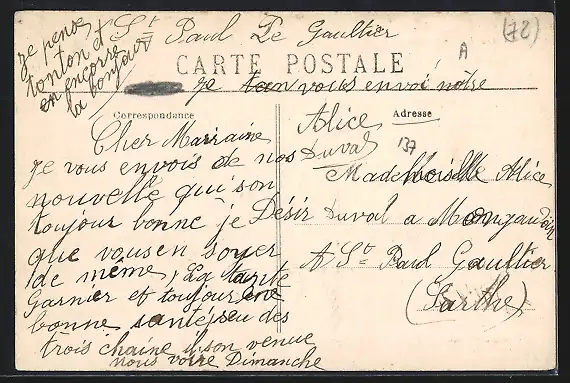 St Paul Le Gaultier
(72)
A
je pense
tonton et
en encorre
la bonjour
CARTE POSTALE
je vous envoi notre
Correspondance
Adresse
Cher Marraine
je vous envois de nos
nouvelle qui son
toujour bonne je Désir
que vous en soyer
de même, La tante
Garnier et toujour en
bonne santé
des
trois chaine il son venue
nous voire Dimanche
Alice
Duval
137
Mademoiselle Alice
Duval a
A St Paul Gaultier
(Sarthe)